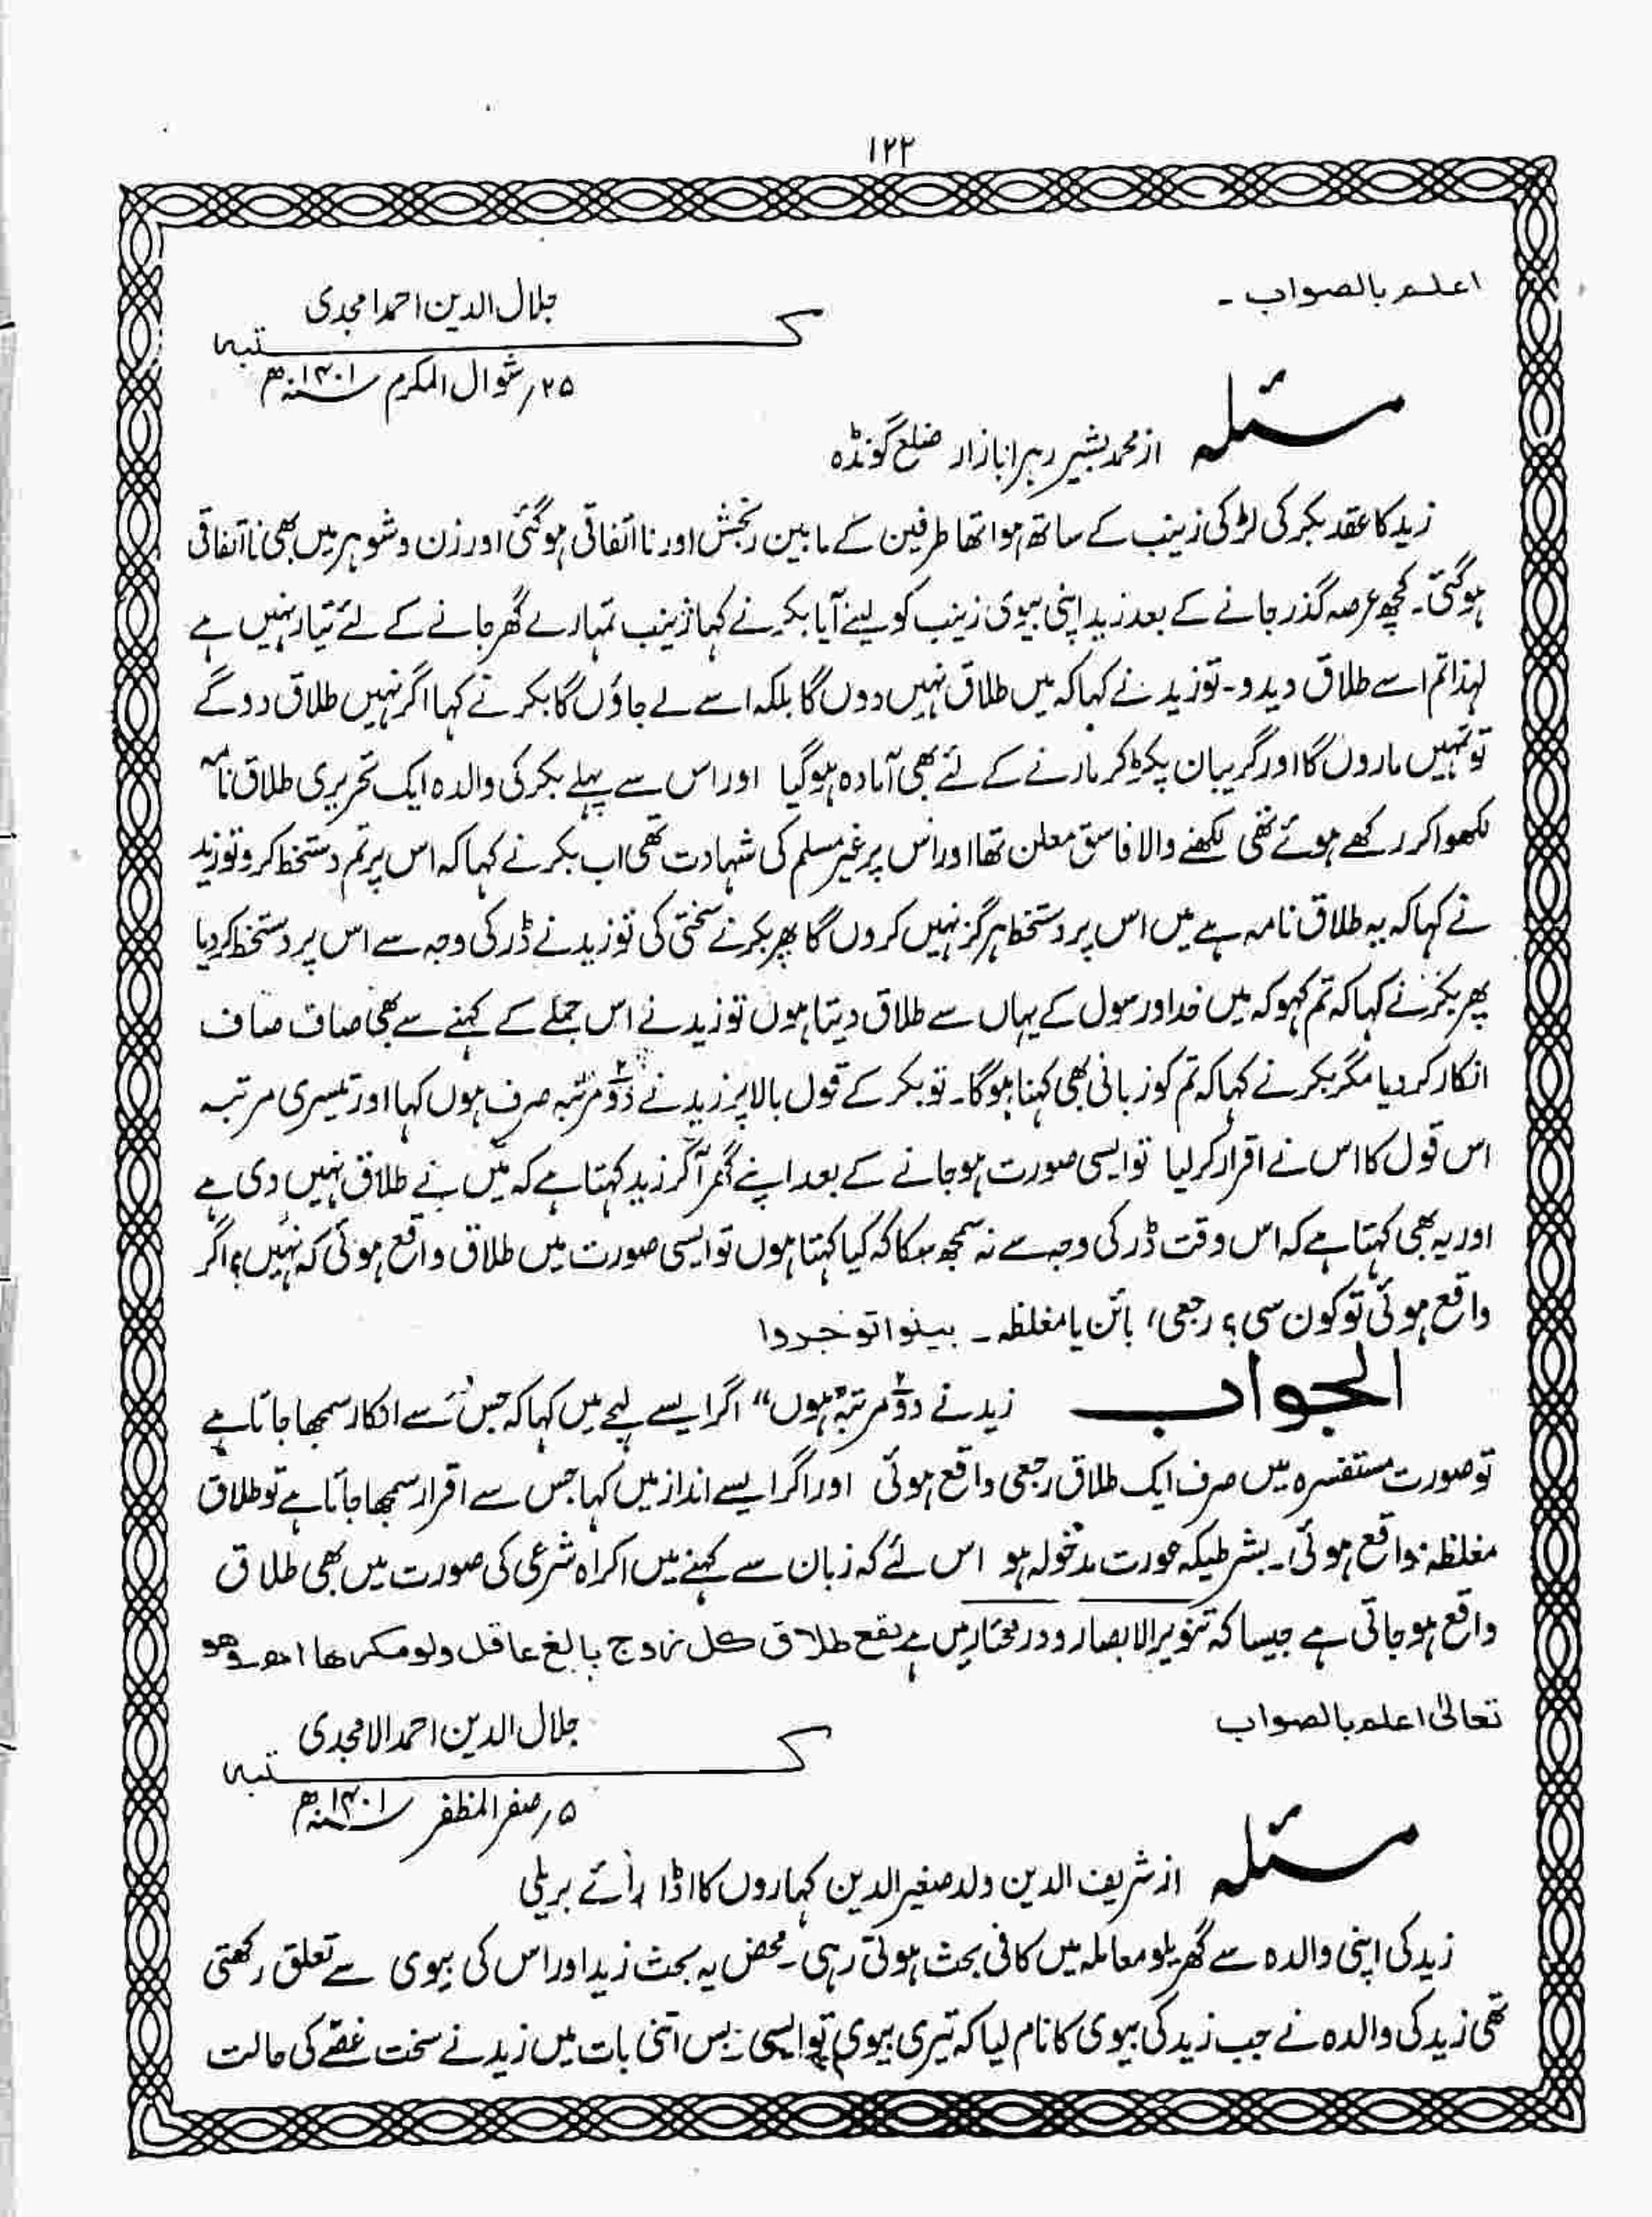 ۱۲۲
اعلم بالصواب۔
جلال الدین احمد امجدی
کتبہ
۲۵؍ شوال المکرم ۱۴۰۱ھ
مسئلہ از محمد بشیر رہرا بازار ضلع گونڈہ
زید کا عقد بکر کی لڑکی زینب کے ساتھ ہوا تھا طرفین کے مابین رنجش اور نا اتفاقی ہوگئی اور زن و شوہر میں بھی نا اتفاقی
ہوگئی۔ کچھ عرصہ گذر جانے کے بعد زید اپنی بیوی زینب کو لینے آیا بکر نے کہا زینب تمہارے گھر جانے کے لئے تیار نہیں ہے
لہذا تم اسے طلاق دیدو۔ تو زید نے کہا کہ میں طلاق نہیں دوں گا بلکہ اسے لے جاؤں گا بکر نے کہا اگر نہیں طلاق دو گے
تو تمہیں ماروں گا اور گریبان پکڑ کر مارنے کے لئے بھی آمادہ ہوگیا اور اس سے پہلے بکر کی والدہ ایک تحریری طلاق نامہ
لکھوا کر رکھے ہوئے تھی لکھنے والا فاسق معلن تھا اور اس پر غیر مسلم کی شہادت تھی اب بکر نے کہا کہ اس پر تم دستخط کرو تو زید
نے کہا کہ یہ طلاق نامہ ہے میں اس پر دستخط ہرگز نہیں کروں گا پھر بکر نے سختی کی تو زید نے ڈر کی وجہ سے اس پر دستخط کر دیا
پھر بکر نے کہا کہ تم کہو کہ میں خدا و رسول کے یہاں سے طلاق دیتا ہوں تو زید نے اس جملے کے کہنے سے بھی صاف صاف
انکار کر دیا مگر بکر نے کہا کہ تم کو زبانی بھی کہنا ہوگا۔ تو بکر کے قول بالا پر زید نے دو۲ مرتبہ صرف ہوں کہا اور تیسری مرتبہ
اس قول کا اس نے اقرار کر لیا تو ایسی صورت ہو جانے کے بعد اپنے گھر آکر زید کہتا ہے کہ میں نے طلاق نہیں دی ہے
اور یہ بھی کہتا ہے کہ اس وقت ڈر کی وجہ سے نہ سمجھ سکا کہ کیا کہتا ہوں تو ایسی صورت میں طلاق واقع ہوئی کہ نہیں؟ اگر
واقع ہوئی تو کون سی؟ رجعی، بائن یا مغلظہ۔ بینوا توجروا
الجواب زید نے دو۲ مرتبہ "ہوں" اگر ایسے لہجے میں کہا کہ جس سے انکار سمجھا جاتا ہے
تو صورت مستفسرہ میں صرف ایک طلاق رجعی واقع ہوئی اور اگر ایسے انداز میں کہا جس سے اقرار سمجھا جاتا ہے تو طلاق
مغلظہ واقع ہوئی۔ بشرطیکہ عورت مدخولہ ہو اس لئے کہ زبان سے کہنے میں اکراہ شرعی کی صورت میں بھی طلاق
واقع ہو جاتی ہے جیسا کہ تنویر الابصار و در مختار میں ہے یقع طلاق کل زوج بالغ عاقل ولو مکرھا اھ وھو
تعالیٰ اعلم بالصواب
جلال الدین احمد الامجدی
کتبہ
۵؍ صفر المظفر ۱۴۰۱ھ
مسئلہ از شریف الدین ولد صغیر الدین کہاروں کا اڈا رائے بریلی
زید کی اپنی والدہ سے گھریلو معاملہ میں کافی بحث ہوتی رہی۔ محض یہ بحث زید اور اس کی بیوی سے تعلق رکھتی
تھی زید کی والدہ نے جب زید کی بیوی کا نام لیا کہ تیری بیوی تو ایسی ہے بس اتنی بات میں زید نے سخت غصے کی حالت